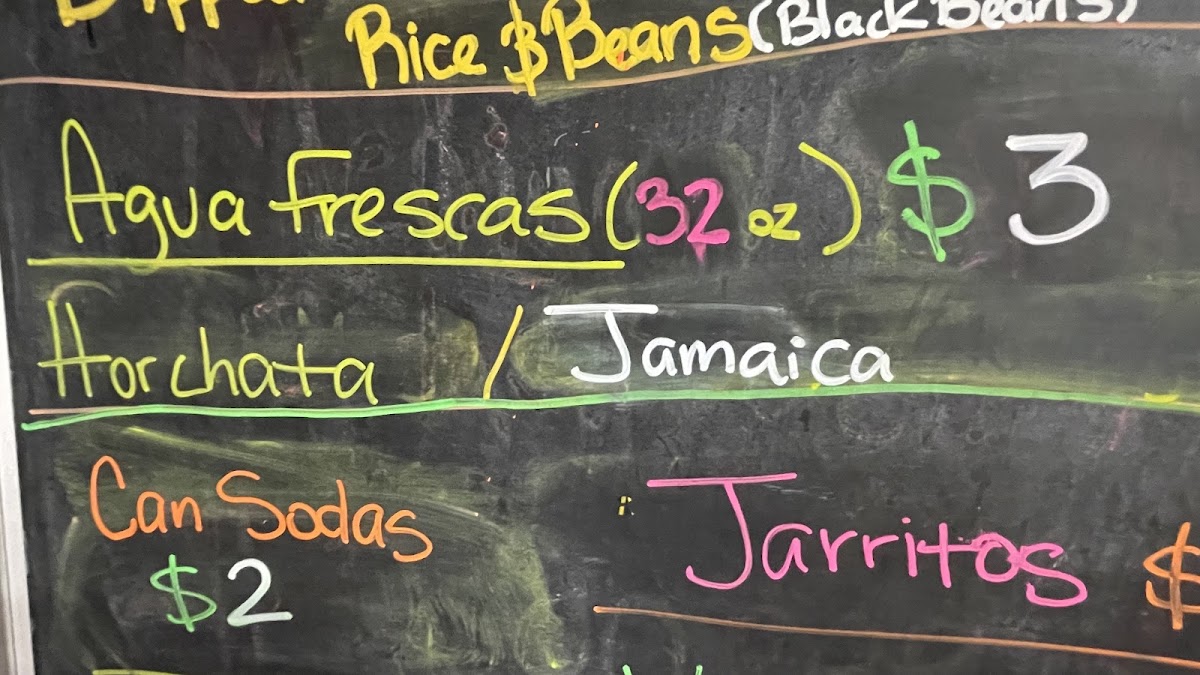 Rice & Beans (Black Beans)
Agua frescas (32 oz) $3
Horchata / Jamaica
Can Sodas
$2
Jarritos $